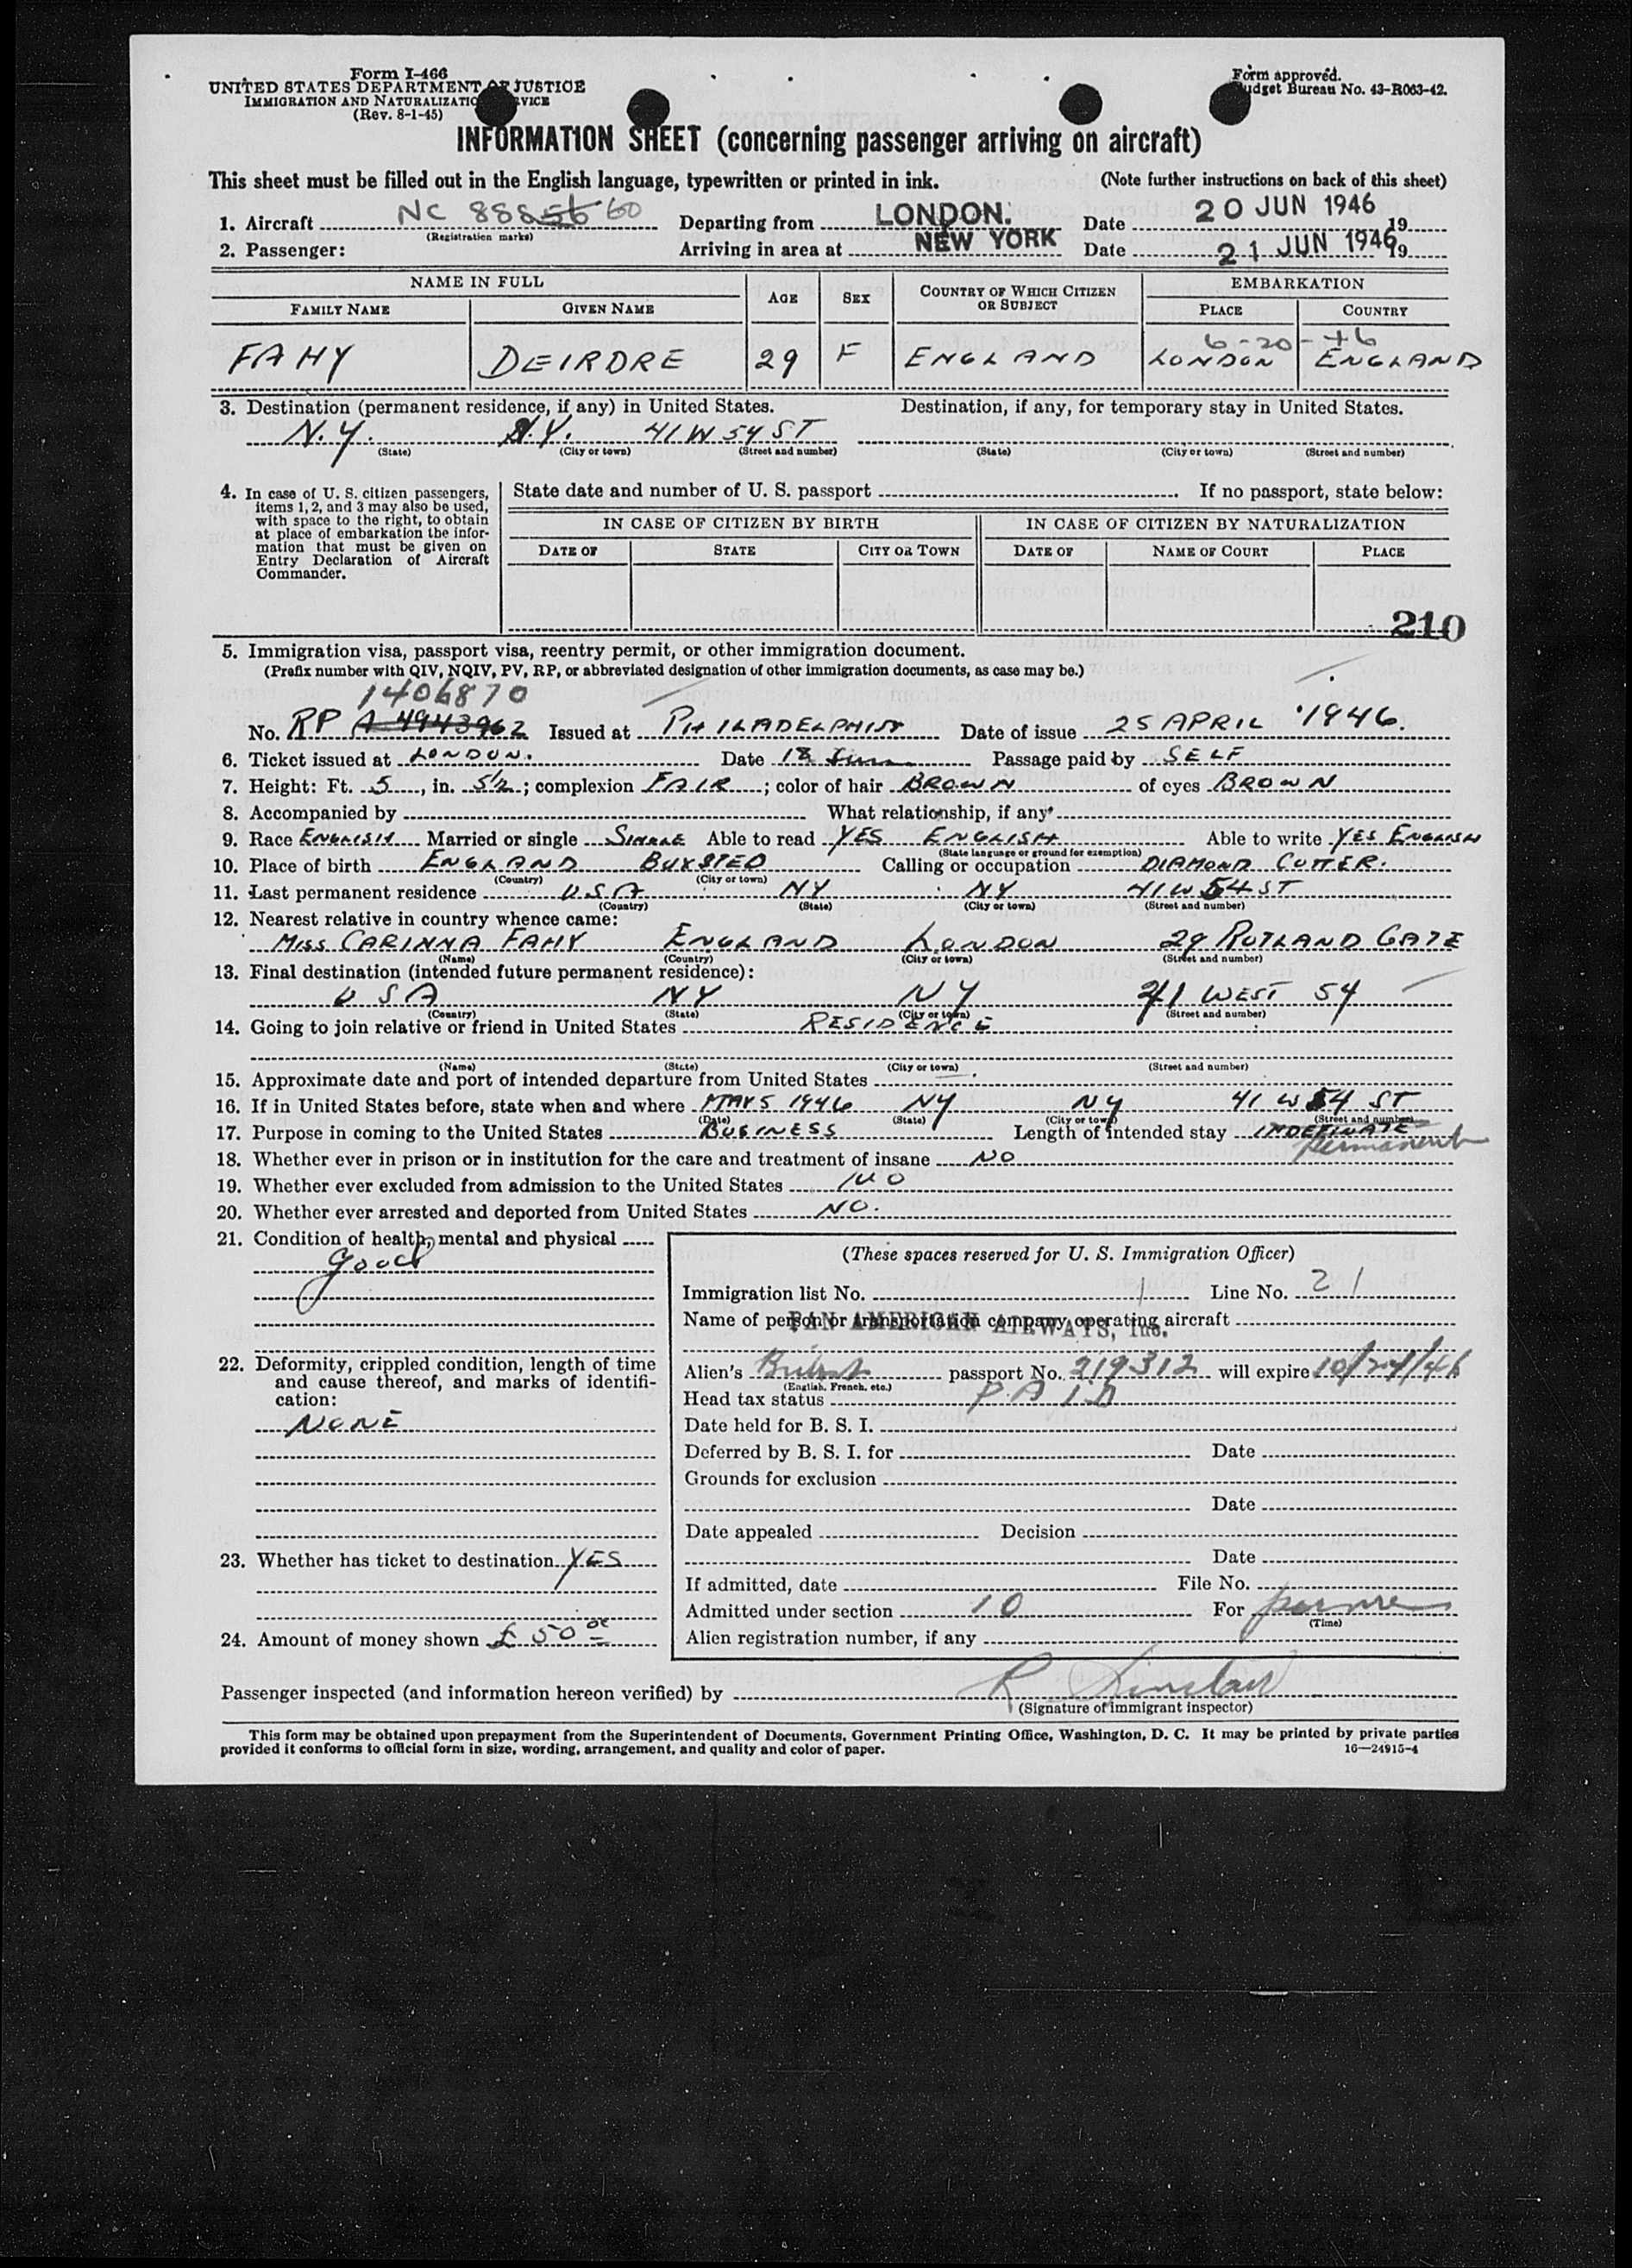 Form I-466
UNITED STATES DEPARTMENT OF JUSTICE
IMMIGRATION AND NATURALIZATION SERVICE
(Rev. 8-1-45)
Form approved.
Budget Bureau No. 43-R063-42.
INFORMATION SHEET (concerning passenger arriving on aircraft)
This sheet must be filled out in the English language, typewritten or printed in ink. (Note further instructions on back of this sheet)
1. Aircraft NC 88856 60 Departing from LONDON. Date 20 JUN 1946 19
(Registration marks)
2. Passenger: Arriving in area at NEW YORK Date 21 JUN 1946 19
NAME IN FULL AGE SEX COUNTRY OF WHICH CITIZEN OR SUBJECT EMBARKATION
FAMILY NAME GIVEN NAME PLACE COUNTRY
6-20-46
FAHY DEIRDRE 29 F ENGLAND LONDON ENGLAND
3. Destination (permanent residence, if any) in United States. Destination, if any, for temporary stay in United States.
N.Y. N.Y. 41 W 54 ST
(State) (City or town) (Street and number) (State) (City or town) (Street and number)
4. In case of U. S. citizen passengers, items 1, 2, and 3 may also be used, with space to the right, to obtain at place of embarkation the information that must be given on Entry Declaration of Aircraft Commander.
State date and number of U. S. passport . If no passport, state below:
IN CASE OF CITIZEN BY BIRTH IN CASE OF CITIZEN BY NATURALIZATION
DATE OF STATE CITY OR TOWN DATE OF NAME OF COURT PLACE
210
5. Immigration visa, passport visa, reentry permit, or other immigration document.
(Prefix number with QIV, NQIV, PV, RP, or abbreviated designation of other immigration documents, as case may be.)
1406870
No. RP A 4943962 Issued at PHILADELPHIA Date of issue 25 APRIL 1946.
6. Ticket issued at LONDON. Date 18 June Passage paid by SELF
7. Height: Ft. 5, in. 5½; complexion FAIR; color of hair BROWN of eyes BROWN
8. Accompanied by What relationship, if any
9. Race ENGLISH Married or single SINGLE Able to read YES ENGLISH Able to write YES ENGLISH
(State language or ground for exemption)
10. Place of birth ENGLAND BUXSTED Calling or occupation DIAMOND CUTTER.
(Country) (City or town)
11. Last permanent residence USA NY NY 41 W 54 ST
(Country) (State) (City or town) (Street and number)
12. Nearest relative in country whence came:
MISS CARINNA FAHY ENGLAND LONDON 29 RUTLAND GATE
(Name) (Country) (City or town) (Street and number)
13. Final destination (intended future permanent residence):
USA NY NY 41 WEST 54
(Country) (State) (City or town) (Street and number)
14. Going to join relative or friend in United States RESIDENCE
(Name) (State) (City or town) (Street and number)
15. Approximate date and port of intended departure from United States
16. If in United States before, state when and where MAY 5 1946 NY NY 41 W 54 ST
(Date) (State) (City or town) (Street and number)
17. Purpose in coming to the United States BUSINESS Length of intended stay INDEFINATE
Permanent
18. Whether ever in prison or in institution for the care and treatment of insane NO
19. Whether ever excluded from admission to the United States NO
20. Whether ever arrested and deported from United States NO.
21. Condition of health, mental and physical
Good
22. Deformity, crippled condition, length of time and cause thereof, and marks of identification:
NONE
23. Whether has ticket to destination YES
24. Amount of money shown £ 50 00
(These spaces reserved for U. S. Immigration Officer)
Immigration list No. 1 Line No. 21
Name of person or transportation company operating aircraft
PAN AMERICAN AIRWAYS, Inc.
Alien's British passport No. 219312 will expire 10/24/46
(English, French, etc.)
Head tax status PAID
Date held for B. S. I.
Deferred by B. S. I. for Date
Grounds for exclusion
Date
Date appealed Decision
Date
If admitted, date File No.
Admitted under section 10 For
(Time)
Alien registration number, if any
Passenger inspected (and information hereon verified) by R Sinclair
(Signature of immigrant inspector)
This form may be obtained upon prepayment from the Superintendent of Documents, Government Printing Office, Washington, D. C. It may be printed by private parties
provided it conforms to official form in size, wording, arrangement, and quality and color of paper. 16—24915-4